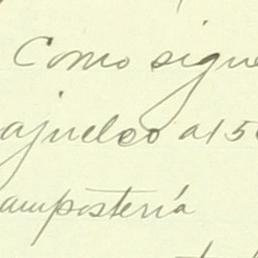 Como sigue
ajuelco al 5
ampostería